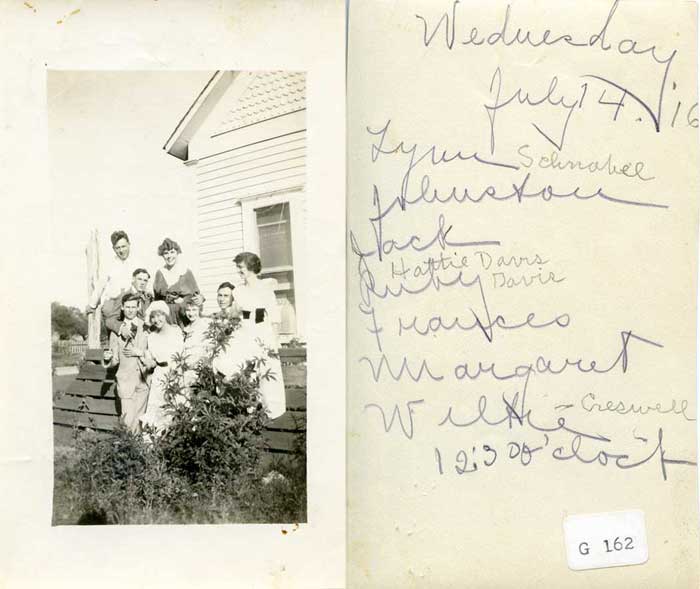 Wednesday
July 14. '16
Lynn Schnabel
Johnston
Jack
Hattie Davis
Ruby Davis
Frances
Margaret
Willie - Creswell
12:30 o'clock
G 162